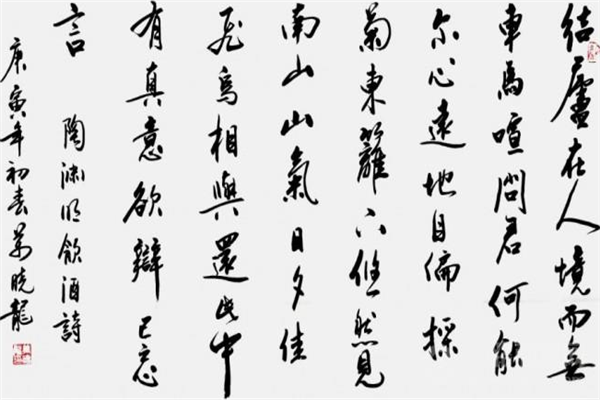 結廬在人境而無
車馬喧問君何能
尔心遠地自偏採
菊東籬下悠然見
南山山氣日夕佳
飛鳥相與還此中
有真意欲辯已忘
言 陶渊明飲酒詩
庚寅年初春曉龍